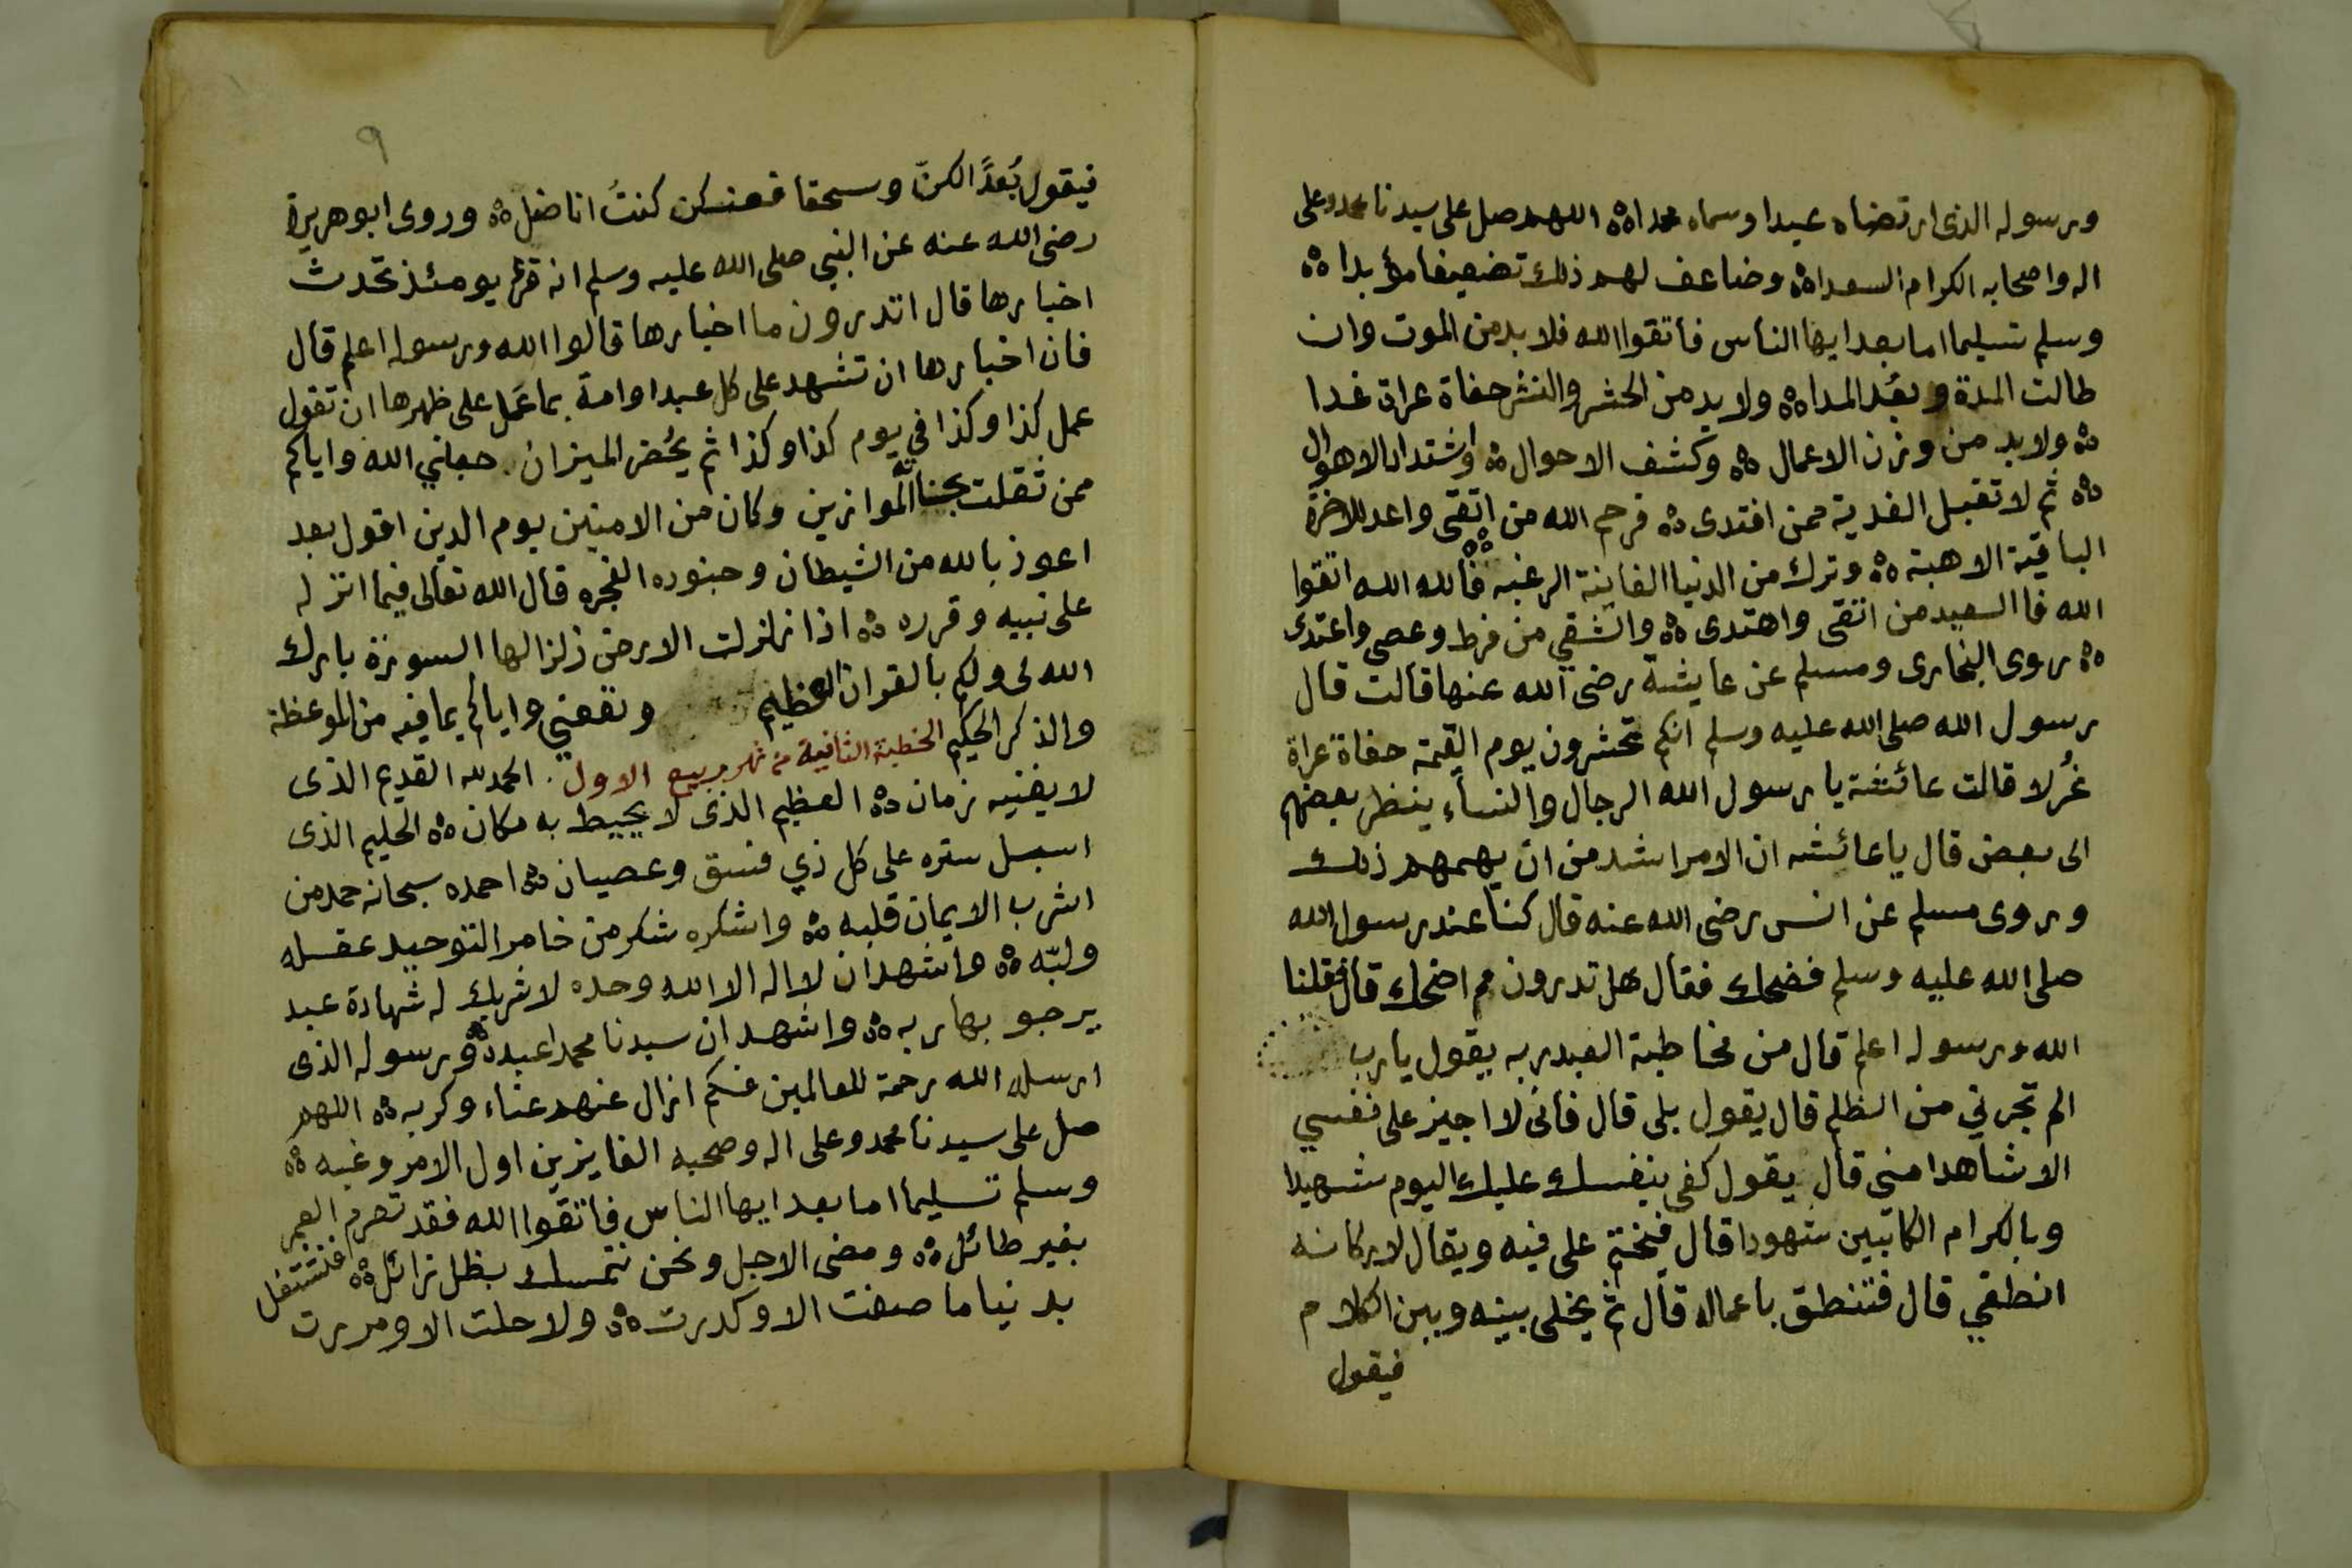 ورسوله الذى ارتضاه عبدا وسماه محمدا ه اللهم صل على سيدنا محمد وعلى
اله واصحابه الكرام السعدا ه وضاعف لهم ذلك تضعيفا مؤبدا ه
وسلم تسليما اما بعد ايها الناس فاتقوا الله فلا بد من الموت وان
طالت المدة وبعُد المدا ه ولا بد من الحشر والنشر حفاة عراة غدا
ه ولا بد من وزن الاعمال ه وكشف الاحوال ه واشتداد الاهوال
ه ثم لا تقبل الفدية ممن افتدى ه فرحم الله من اتقى واعد للاخرة
الباقية الاهبة ه وترك من الدنيا الفانية الرغبه ه فالله الله اتقوا
الله فاالسعيد من اتقى واهتدى ه والشقي من فرط وعصى واعتدى
ه روى البخارى ومسلم عن عايشة رضى الله عنها قالت قال
رسول الله صلى الله عليه وسلم انكم تحشرون يوم القيمة حفاة عراة
غُرلا قالت عائشة يا رسول الله الرجال والنساء ينظر بعضهم
الى بعض قال يا عائشه ان الامر اشد من ان يهمهم ذلك
وروى مسلم عن انس رضى الله عنه قال كنا عند رسول الله
صلى الله عليه وسلم فضحك فقال هل تدرون مم اضحك قال فقلنا
الله ورسوله اعلم قال من مخاطبة العبد ربه يقول يارب
الم تجرني من الظلم قال يقول بلى قال فانى لا اجيز على نفسي
الا شاهدا منى قال يقول كفى بنفسك عليك اليوم شهيدا
وبالكرام الكاتبين شهودا قال فيختم على فيه ويقال لاركانه
انطقي قال فتنطق باعماله قال ثم يخلى بينه وبين الكلام
فيقول
٩
فيقول بُعدًا لكنّ وسحقا فعنكن كنتُ اناضل ه وروى ابو هريرة
رضى الله عنه عن النبي صلى الله عليه وسلم انه قرء يومئذ تحدث
اخبارها قال اتدرون ما اخبارها قالوا الله ورسوله اعلم قال
فان اخبارها ان تشهد على كل عبد او امة بما عَمل على ظهرها ان تقول
عمل كذا وكذا في يوم كذا وكذا ثم يُحضر الميزان. جعلني الله واياكم
ممن ثقلت بحسناته الموازين وكان من الامنين يوم الدين اقول بعد
اعوذ بالله من الشيطان وجنوده الفجره قال الله تعالى فيما انزله
على نبيه وقرره ه اذا زلزلت الارض زلزالها السورة بارك
الله لى ولكم بالقران العظيم ونفعني واياكم بما فيه من الموعظة
والذكر الحكيم الخطبة الثانية من شهر ربيع الاول . الحمد لله القديم الذى
لا يفنيه زمان ه العظيم الذى لا يحيط به مكان ه الحليم الذى
اسبل ستره على كل ذي فسق وعصيان ه احمده سبحانه حمد من
اشرب الايمان قلبه ه واشكره شكر من خامر التوحيد عقله
ولبّه ه واشهد ان لا اله الا الله وحده لا شريك له شهادة عبد
يرجو بها ربه ه واشهد ان سيدنا محمدا عبده ورسوله الذى
ارسله الله رحمة للعالمين فكم ازال عنهم عناء وكربه ه اللهم
صل على سيدنا محمد وعلى اله وصحبه الفايزين اول الامر وغبه ه
وسلم تسليما اما بعد ايها الناس فاتقوا الله فقد تصرم العمر
بغير طائل ه ومضى الاجل ونحن نتمسك بظل زائل ه فنشتغل
بدنيا ما صفت الا وكدرت ه ولا حلت الا ومررت